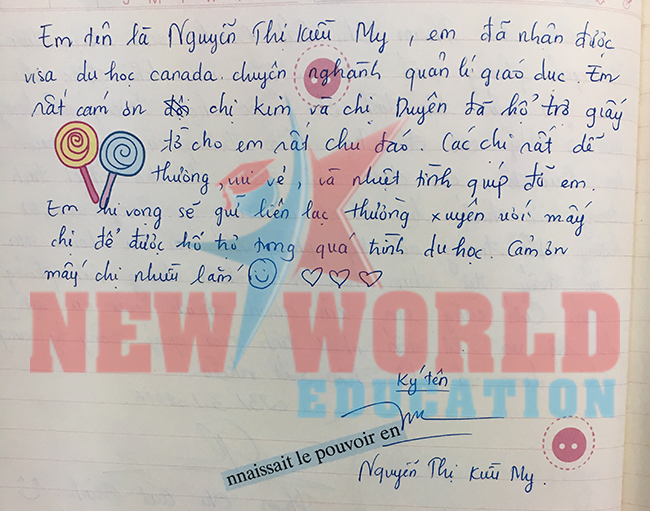 Em tên là Nguyễn Thị Kiều My, em đã nhận được
visa du học canada chuyên nghành quản lí giáo dục. Em
rất cám ơn chị kim và chị Duyên đã hổ trở giấy
tờ cho em rất chu đáo. Các chị rất dễ
thương, vui vẻ, và nhiệt tình giúp đỡ em.
Em hi vong sẽ giữ liên lạc thường xuyên với mấy
chị để được hổ trợ trong quá trình du học. Cảm ơn
mấy chị nhiều lắm
NEW WORLD
EDUCATION
Ký tên
nnaissait le pouvoir en
Nguyễn Thị Kiều My.